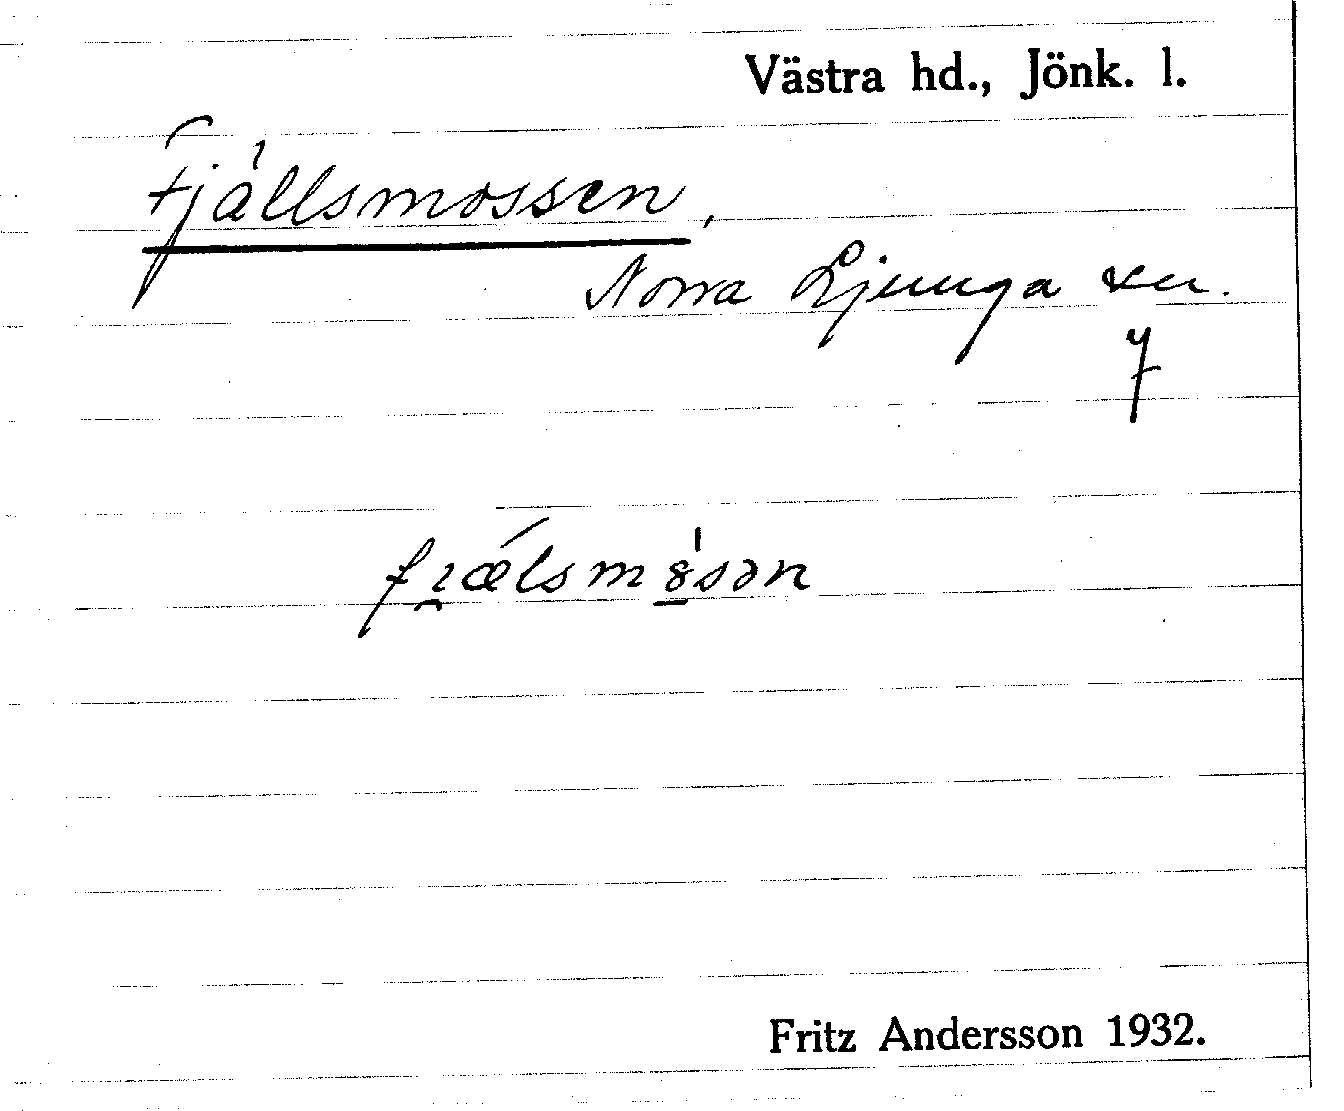 Västra hd., Jönk. l.
Fjällsmossen,
Norra Ljunga sn.
7
fɪ̯ǽlsm8̠ˈsən
Fritz Andersson 1932.